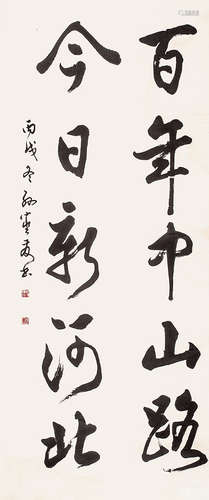 百年中山路
今日新河北
丙戌冬孙
书